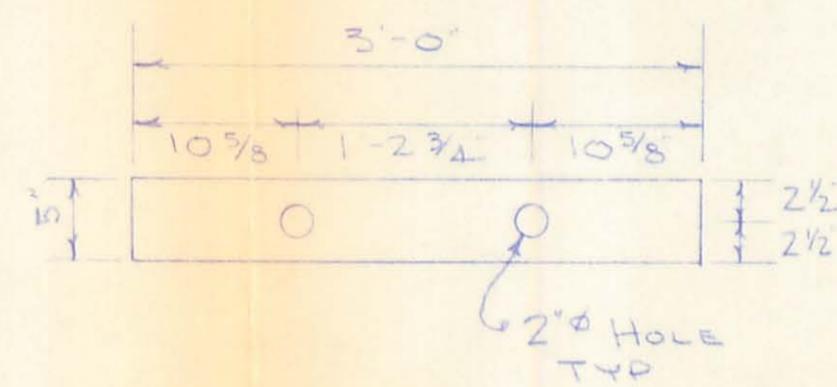 3'-0"
10 5/8 1'-2 3/4 10 5/8
5"
2 1/2"
2 1/2"
2"Ø HOLE
TYP